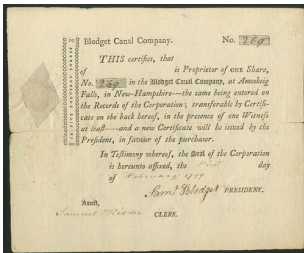 Blodget Canal Company. No. 269
THIS certifies, that
of is Proprietor of ONE Share,
No. 269 in the Blodget Canal Company, at Amoskeig
Falls, in New-Hampshire—the same being entered on
the Records of the Corporation; transferable by Certifi-
cate on the back hereof, in the presence of one Witness
at least—and a new Certificate will be issued by the
President, in favour of the purchaser.
In Testimony whereof, the Seal of the Corporation
is hereunto affixed, the First day
of February 1799
Saml. Blodget PRESIDENT.
Attest,
Samuel CLERK.